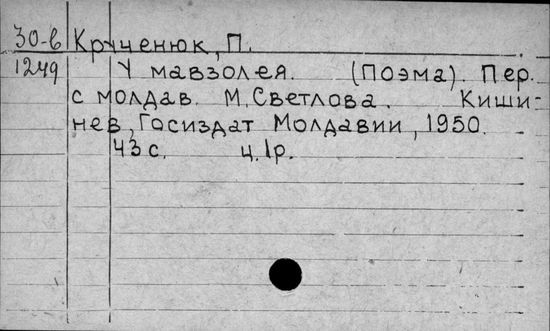 30-6 Крученюк, П.
1249 У мавзолея. (Поэма). Пер.
с молдав. М. Светлова. Киши-
нев, Госиздат Молдавии, 1950.
43 с. ц. 1р.